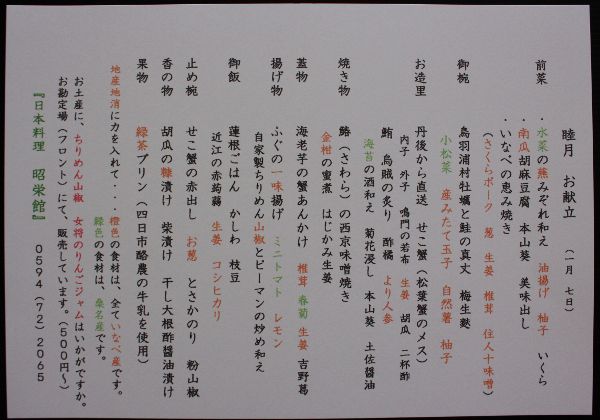 睦月 お献立 (一月 七日)
前菜 ・水菜の燻みぞれ和え 油揚げ 柚子 いくら
・南瓜胡麻豆腐 本山葵 美味出し
・いなべの恵み焼き
(さくらポーク 葱 生姜 椎茸 住人十味噌)
御椀 鳥羽浦村牡蠣と鮭の真丈 梅生麩
小松菜 産みたて玉子 自然薯 柚子
お造里 丹後から直送 せこ蟹(松葉蟹のメス)
内子 外子 鳴門の若布 生姜 胡瓜 二杯酢
鮪 烏賊の炙り 酢橘 より人参
海苔の酒和え 菊花浸し 本山葵 土佐醤油
焼き物 鰆(さわら)の西京味噌焼き
金柑の蜜煮 はじかみ生姜
蓋物 海老芋の蟹あんかけ 椎茸 春菊 生姜 吉野葛
揚げ物 ふぐの一味揚げ ミニトマト レモン
自家製ちりめん山椒とピーマンの炒め和え
御飯 蓮根ごはん かしわ 枝豆
近江の赤蒟蒻 生姜 コシヒカリ
止め椀 せこ蟹の赤出し お葱 とさかのり 粉山椒
香の物 胡瓜の糠漬け 柴漬け 干し大根酢醤油漬け
果物 緑茶プリン (四日市酪農の牛乳を使用)
地産地消に力を入れて・・・橙色の食材は、全ていなべ産です。
緑色の食材は、桑名産です。
お土産に、ちりめん山椒 女将のりんごジャムはいかがですか。
お勘定場(フロント)にて、販売しています。(500円~)
『日本料理 昭栄館』 0594(72)2065